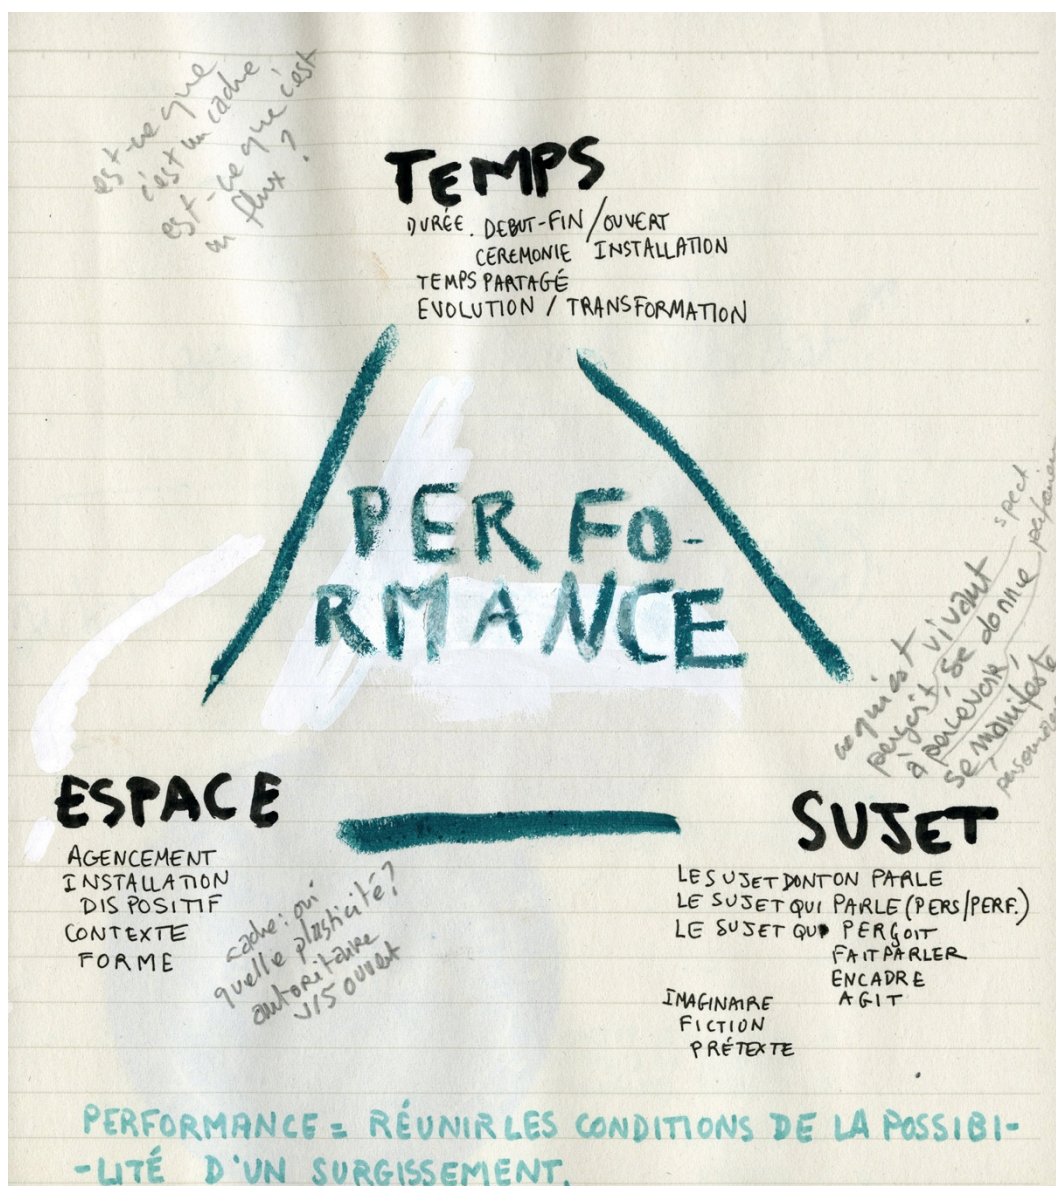 est-ce que
c'est un cadre
est-ce que c'est
un flux ?
TEMPS
DURÉE. DEBUT-FIN / OUVERT
CEREMONIE INSTALLATION
TEMPS PARTAGÉ
EVOLUTION / TRANSFORMATION
PERFO-
RMANCE
ce qui est vivant spect
perçoit, se donne
à percevoir,
se manifeste
ESPACE
AGENCEMENT
INSTALLATION
DISPOSITIF
CONTEXTE
FORME
cadre : oui
quelle plasticité ?
autoritaire
v/s ouvert
SUJET
LE SUJET DONT ON PARLE
LE SUJET QUI PARLE (PERS/PERF.)
LE SUJET QUI PERÇOIT
FAIT PARLER
ENCADRE
AGIT
IMAGINAIRE
FICTION
PRÉTEXTE
PERFORMANCE = RÉUNIR LES CONDITIONS DE LA POSSIBI-
-LITÉ D'UN SURGISSEMENT.